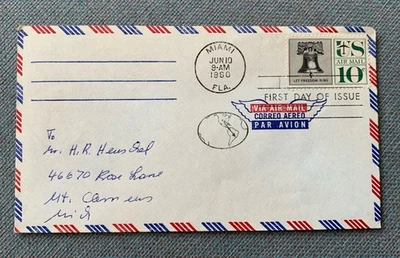 MIAMI
JUN 10
9-AM
1960
FLA.
LET FREEDOM RING
US
AIR MAIL
10¢
FIRST DAY OF ISSUE
VIA AIR MAIL
CORREO AEREO
PAR AVION
To
H.R. Henschel
46670 Rose Lane
Mt. Clemens
Mich